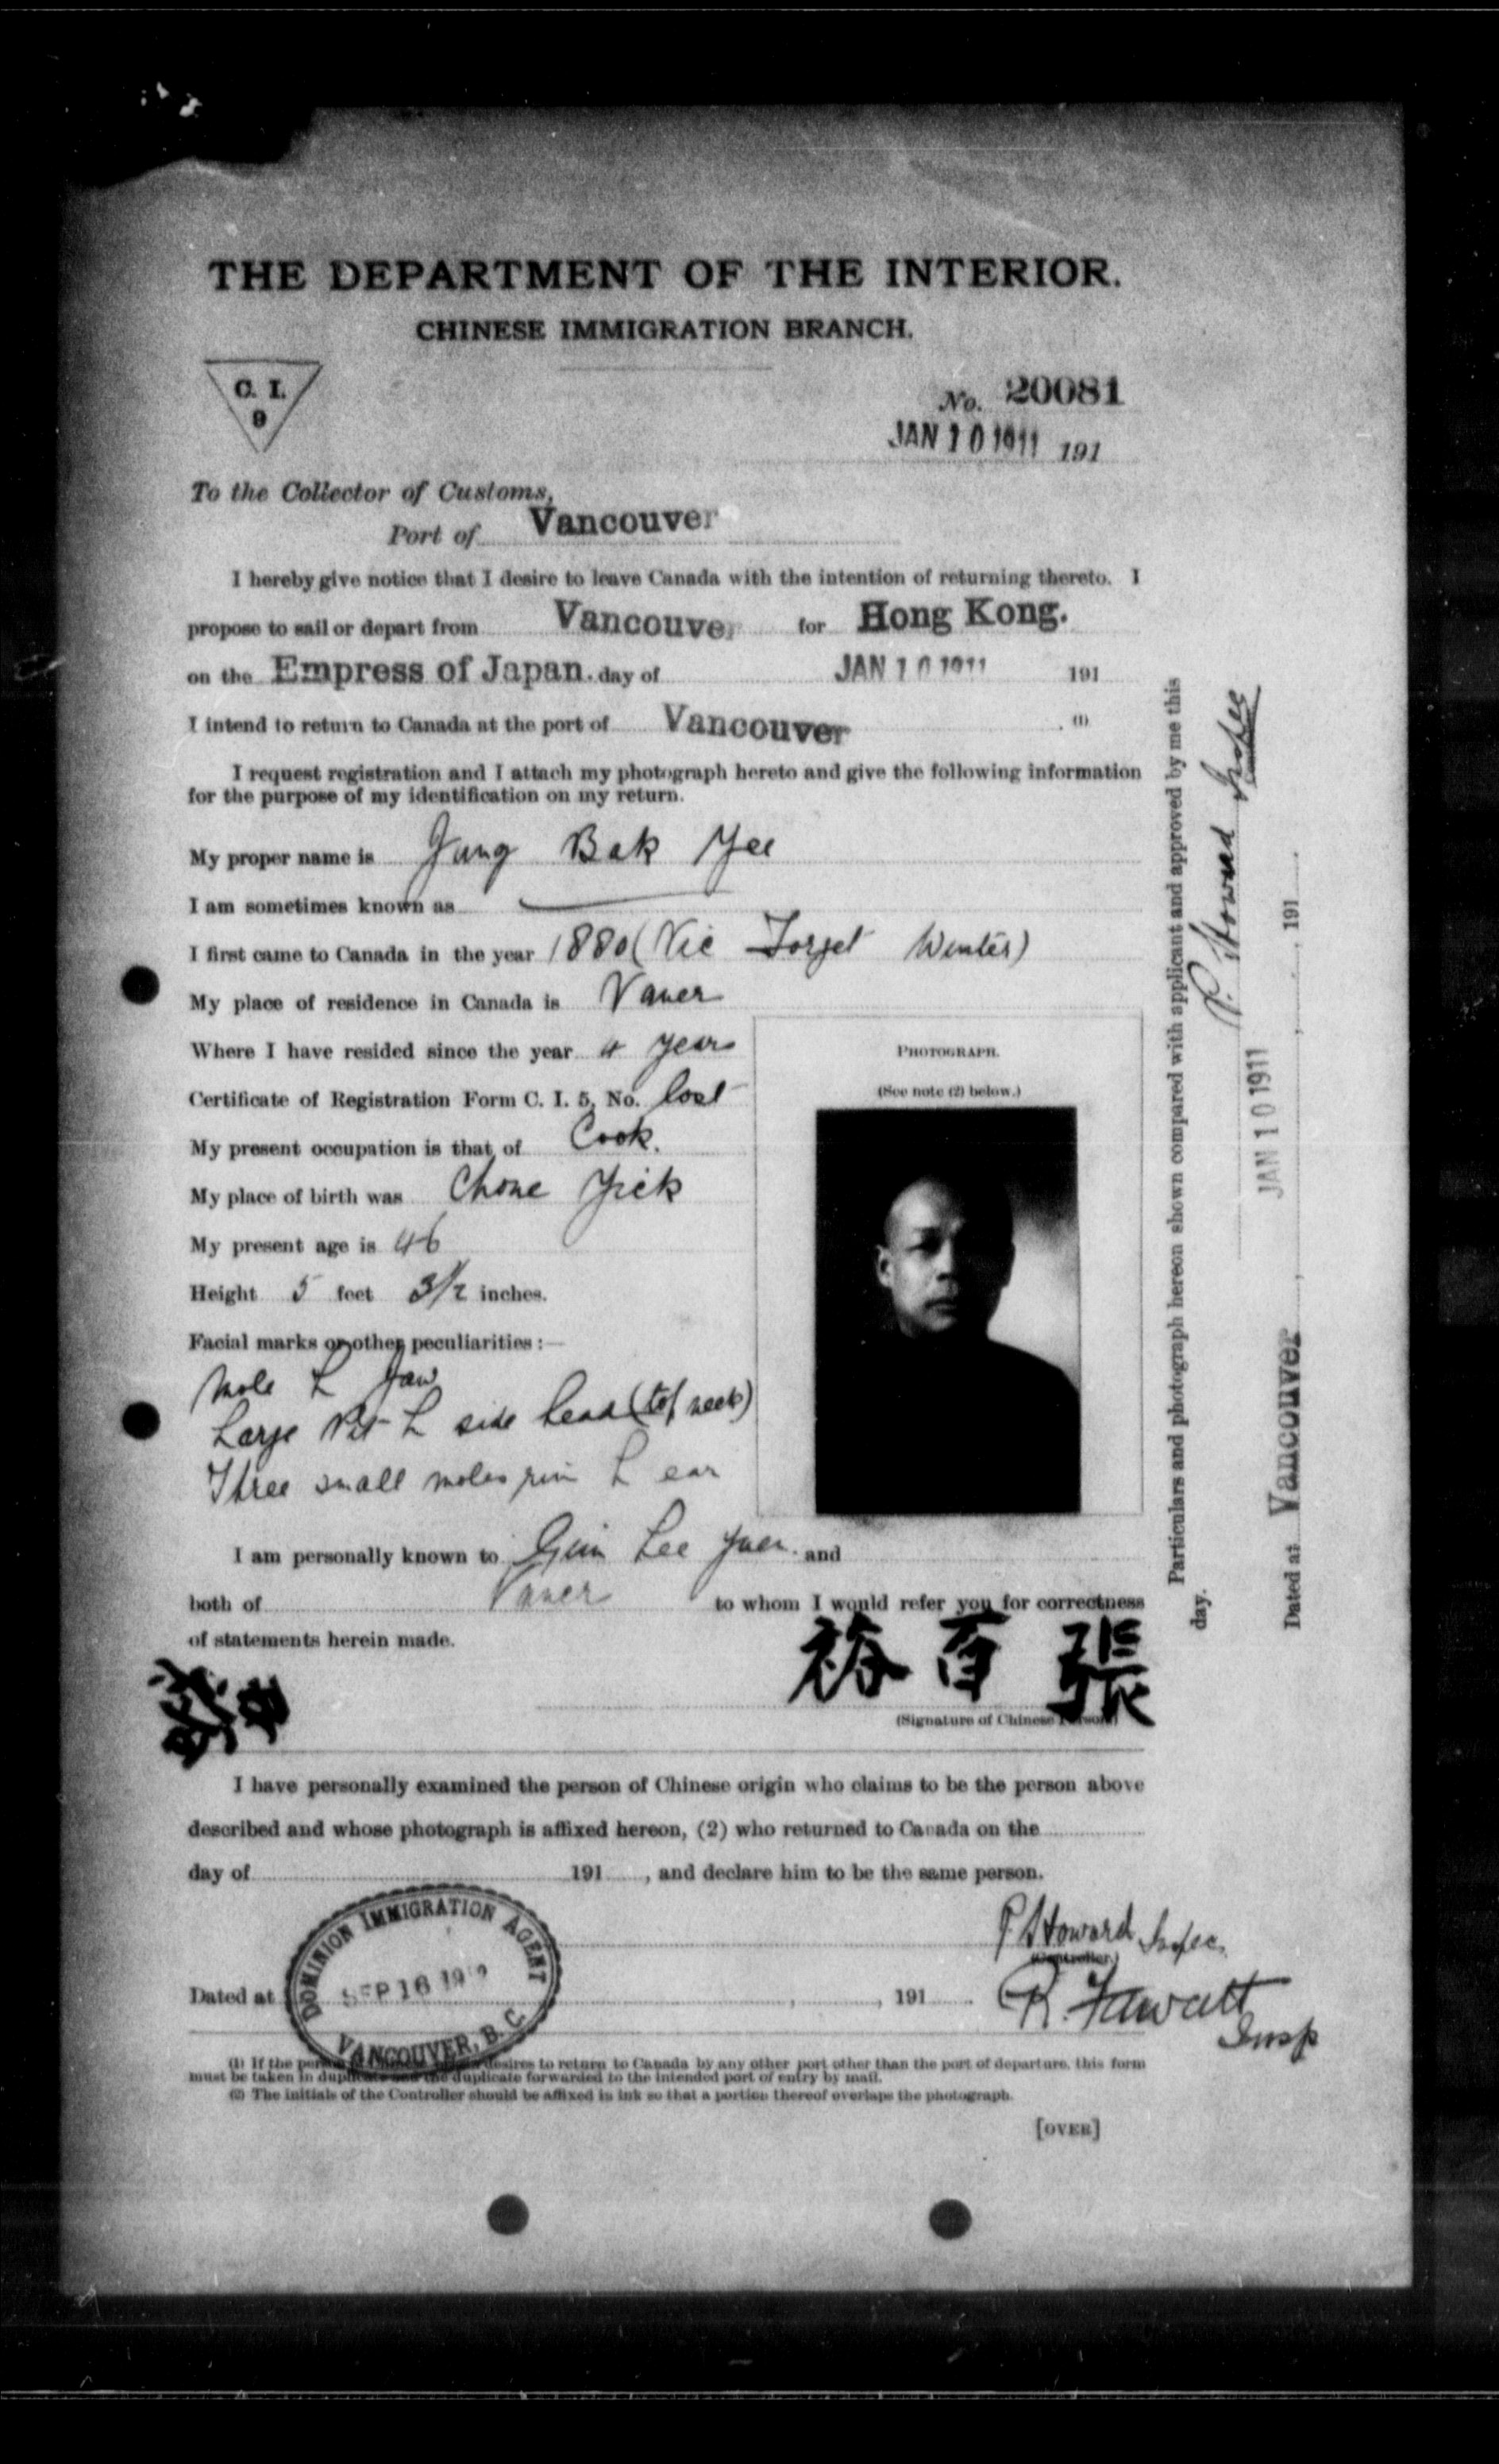 THE DEPARTMENT OF THE INTERIOR.
CHINESE IMMIGRATION BRANCH.
C. I.
9
No. 20081
JAN 10 1911 191
To the Collector of Customs,
Port of Vancouver
I hereby give notice that I desire to leave Canada with the intention of returning thereto. I
propose to sail or depart from Vancouver for Hong Kong.
on the Empress of Japan. day of JAN 10 1911 191
I intend to return to Canada at the port of Vancouver . (1)
I request registration and I attach my photograph hereto and give the following information
for the purpose of my identification on my return.
My proper name is Jung Bak Yee
I am sometimes known as
I first came to Canada in the year 1880 (Vic Forget Winter)
My place of residence in Canada is Vancr
Where I have resided since the year 4 years
Certificate of Registration Form C. I. 5, No. lost
My present occupation is that of Cook.
My place of birth was Chone Yick
My present age is 46
Height 5 feet 3 1/2 inches.
Facial marks or other peculiarities :—
Mole L Jaw
Large Pit L side head (top neck)
Three small moles rim L ear
PHOTOGRAPH.
(See note (2) below.)
I am personally known to Gim Lee Yuen. and
both of Vancr to whom I would refer you for correctness
of statements herein made.
裕百張
(Signature of Chinese Person)
I have personally examined the person of Chinese origin who claims to be the person above
described and whose photograph is affixed hereon, (2) who returned to Canada on the
day of 191 , and declare him to be the same person.
P. Howard Inspec.
(Controller)
Dated at , 191
R. Fawcett
Insp
DOMINION IMMIGRATION AGENT
SEP 16
VANCOUVER, B. C.
(1) If the desires to return to Canada by any other port other than the port of departure, this form
must be taken in duplicate and the duplicate forwarded to the intended port of entry by mail.
(2) The initials of the Controller should be affixed in ink so that a portion thereof overlaps the photograph.
[OVER]
Particulars and photograph hereon shown compared with applicant and approved by me this
day.
P. Howard Inspec
JAN 10 1911
Dated at Vancouver , , 191